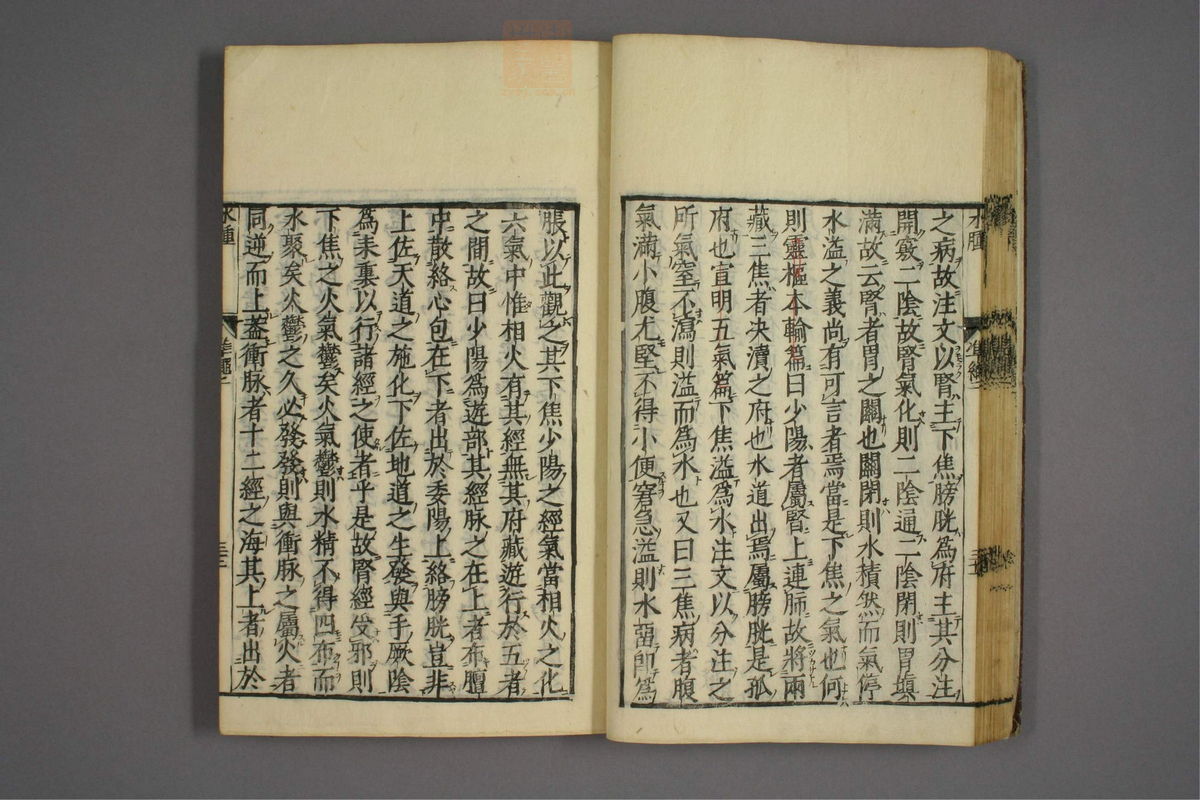 水腫
準繩
之病故注文以腎主下焦膀胱爲府主其分注
開竅二陰故腎氣化則二陰通二陰閉則胃塡
滿故云腎者胃之關也關閉則水積然而氣停
水溢之義尚有可言者焉當是下焦之氣也何
則靈樞本輸篇曰少陽者屬腎上連肺故將兩
藏三焦者决瀆之府也水道出焉屬膀胱是孤
府也宣明五氣篇下焦溢爲水注文以分注之
所氣窒不瀉則溢而爲水也又曰三焦病者腹
氣滿小腹尤堅不得小便窘急溢則水畱卽爲
脹以此觀之其下焦少陽之經氣當相火之化
六氣中惟相火有其經無其府藏遊行於五者
之間故曰少陽爲遊部其經脉之在上者布膻
中散絡心包在下者出於委陽上絡膀胱豈非
上佐天道之施化下佐地道之生發與手厥陰
爲表裏以行諸經之使者乎是故腎經受邪則
下焦之火氣鬱矣火氣鬱則水精不得四布而
水聚矣火鬱之久必發發則與衝脉之屬火者
同逆而上蓋衝脉者十二經之海其上者出於
水腫
準繩